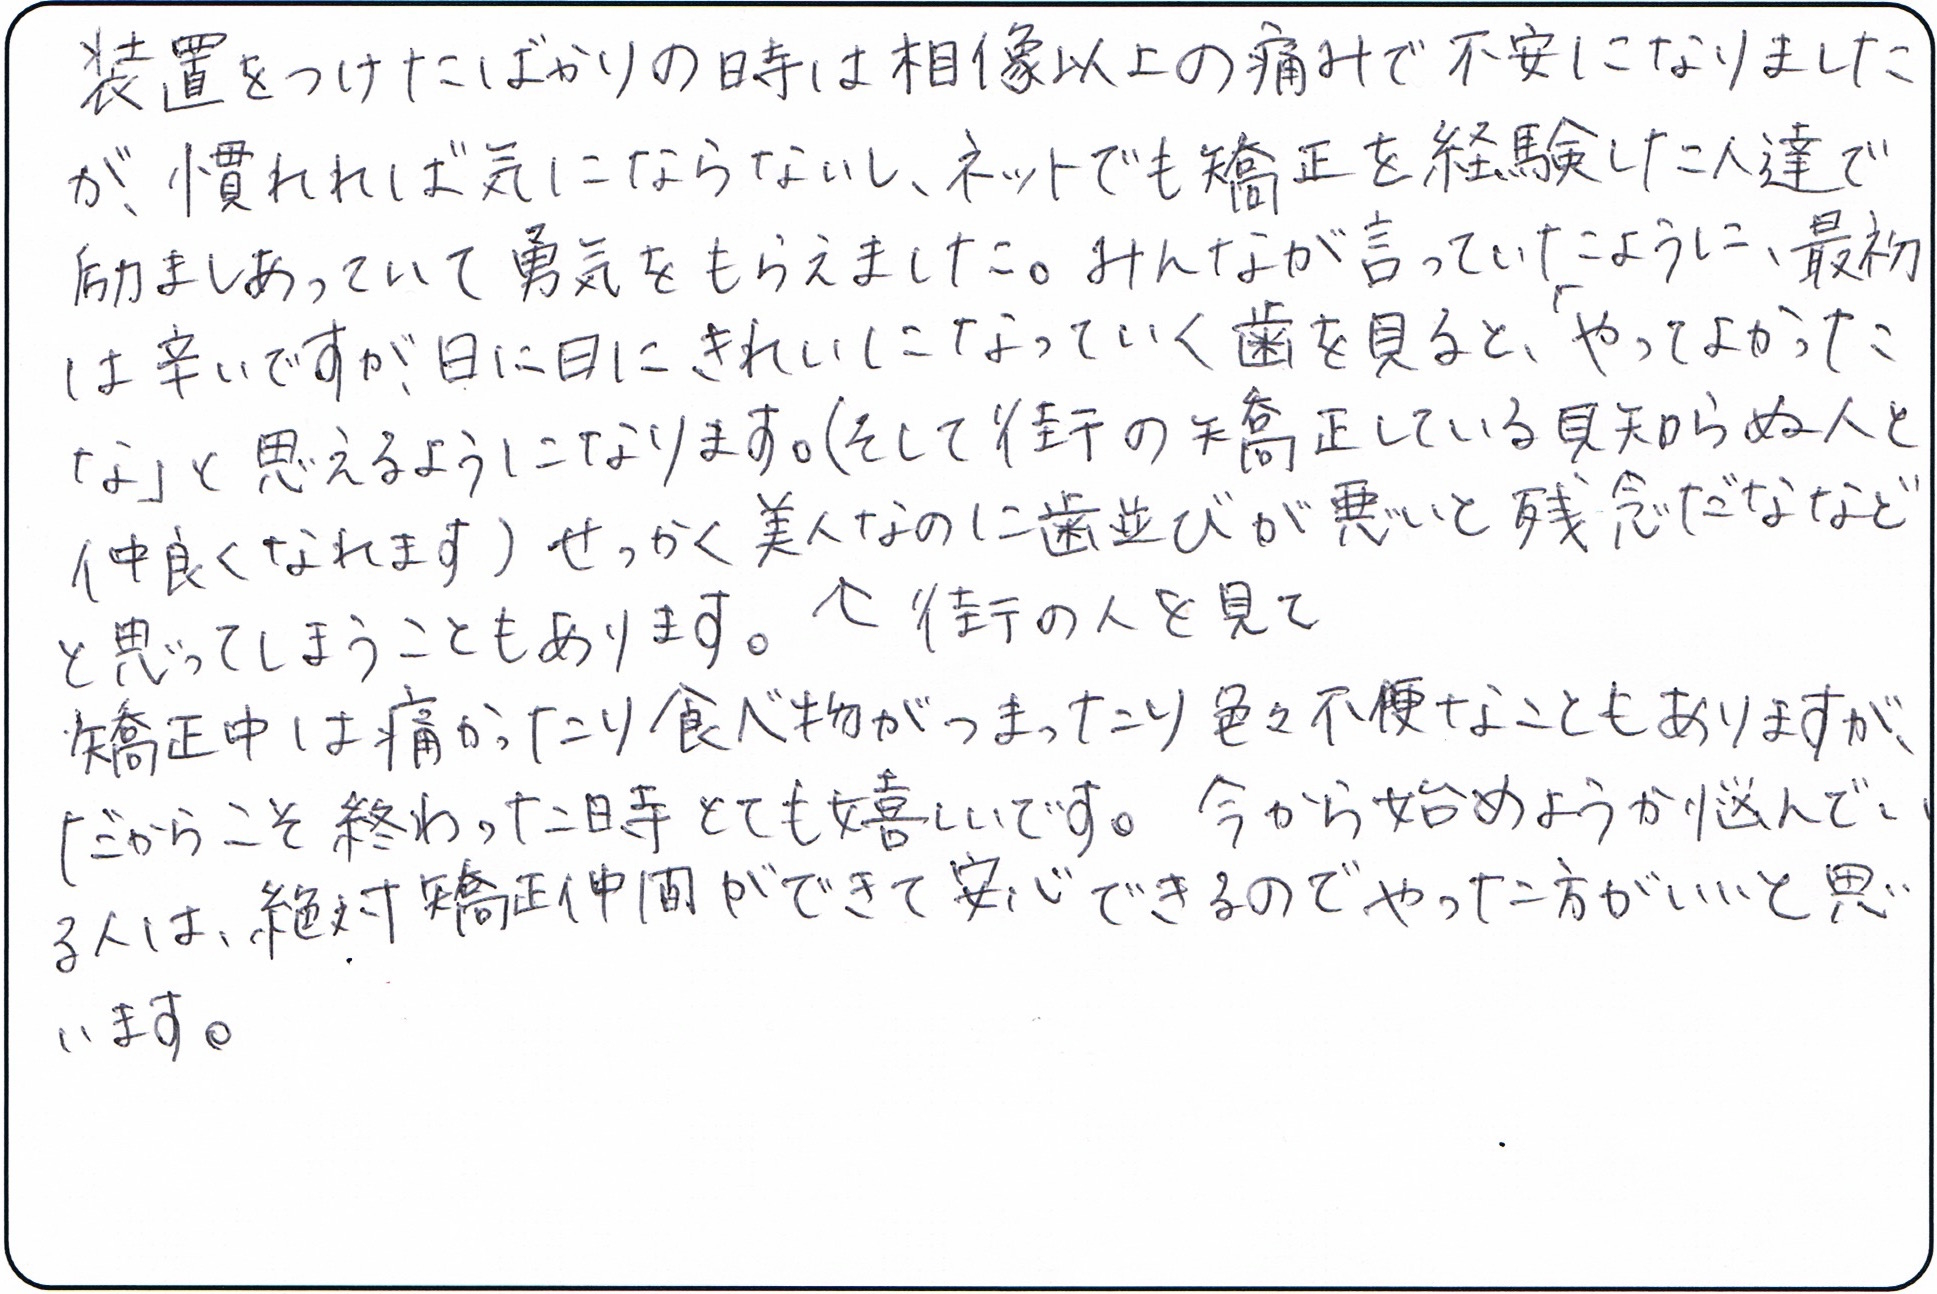 装置をつけたばかりの時は相像以上の痛みで不安になりました
が、慣れれば気にならないし、ネットでも矯正を経験した人達で
励ましあっていて勇気をもらえました。みんなが言っていたように、最初
は辛いですが、日に日にきれいになっていく歯を見ると、「やってよかった
な」と思えるようになります。(そして街の矯正している見知らぬ人と
仲良くなれます)せっかく美人なのに歯並びが悪いと残念だななど
と思ってしまうこともあります。↖街の人を見て
矯正中は痛かったり食べ物がつまったり色々不便なこともありますが、
だからこそ終わった時とても嬉しいです。今から始めようか悩んでい
る人は、絶対矯正仲間ができて安心できるのでやった方がいいと思
います。